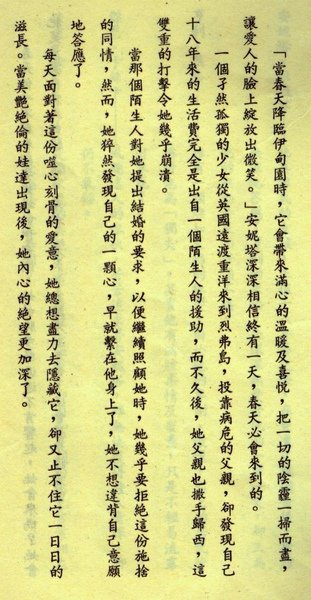 「當春天降臨伊甸園時，它會帶來滿心的溫暖及喜悅，把一切的陰霾一掃而盡，
讓愛人的臉上綻放出微笑。」安妮塔深深相信終有一天，春天必會來到的。
一個孑然孤獨的少女從英國遠渡重洋來到烈弗島，投靠病危的父親，卻發現自己
十八年來的生活費完全是出自一個陌生人的援助，而不久後，她父親也撒手歸西，這
雙重的打擊令她幾乎崩潰。
當那個陌生人對她提出結婚的要求，以便繼續照顧她時，她幾乎要拒絕這份施捨
的同情，然而，她猝然發現自己的一顆心，早就繫在他身上了，她不想違背自己意願
地答應了。
每天面對著這份噬心刻骨的愛意，她總想盡力去隱藏它，卻又止不住它一日日的
滋長。當美艷絕倫的娃達出現後，她內心的絕望更加深了。